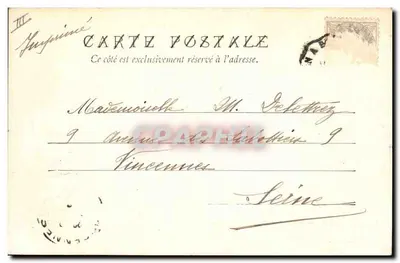 III
Imprimé
CARTE POSTALE
Ce côté est exclusivement réservé à l'adresse.
Mademoiselle M. Delettrez
9 Avenue des Sabotiers 9
Vincennes
Seine